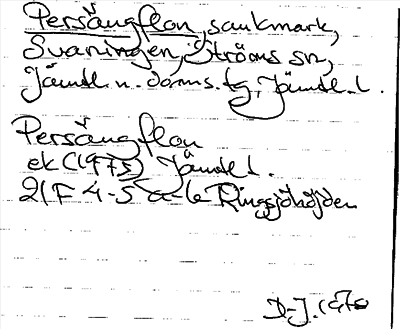 Persångflon, sankmark,
Svaningen, Ströms sn,
Jämtl. n. doms. tg, Jämtl. l.
Persångflon
ek (1975) Jämtl l.
21F 4-5 a-b Ringsjöhöjden
D-J.